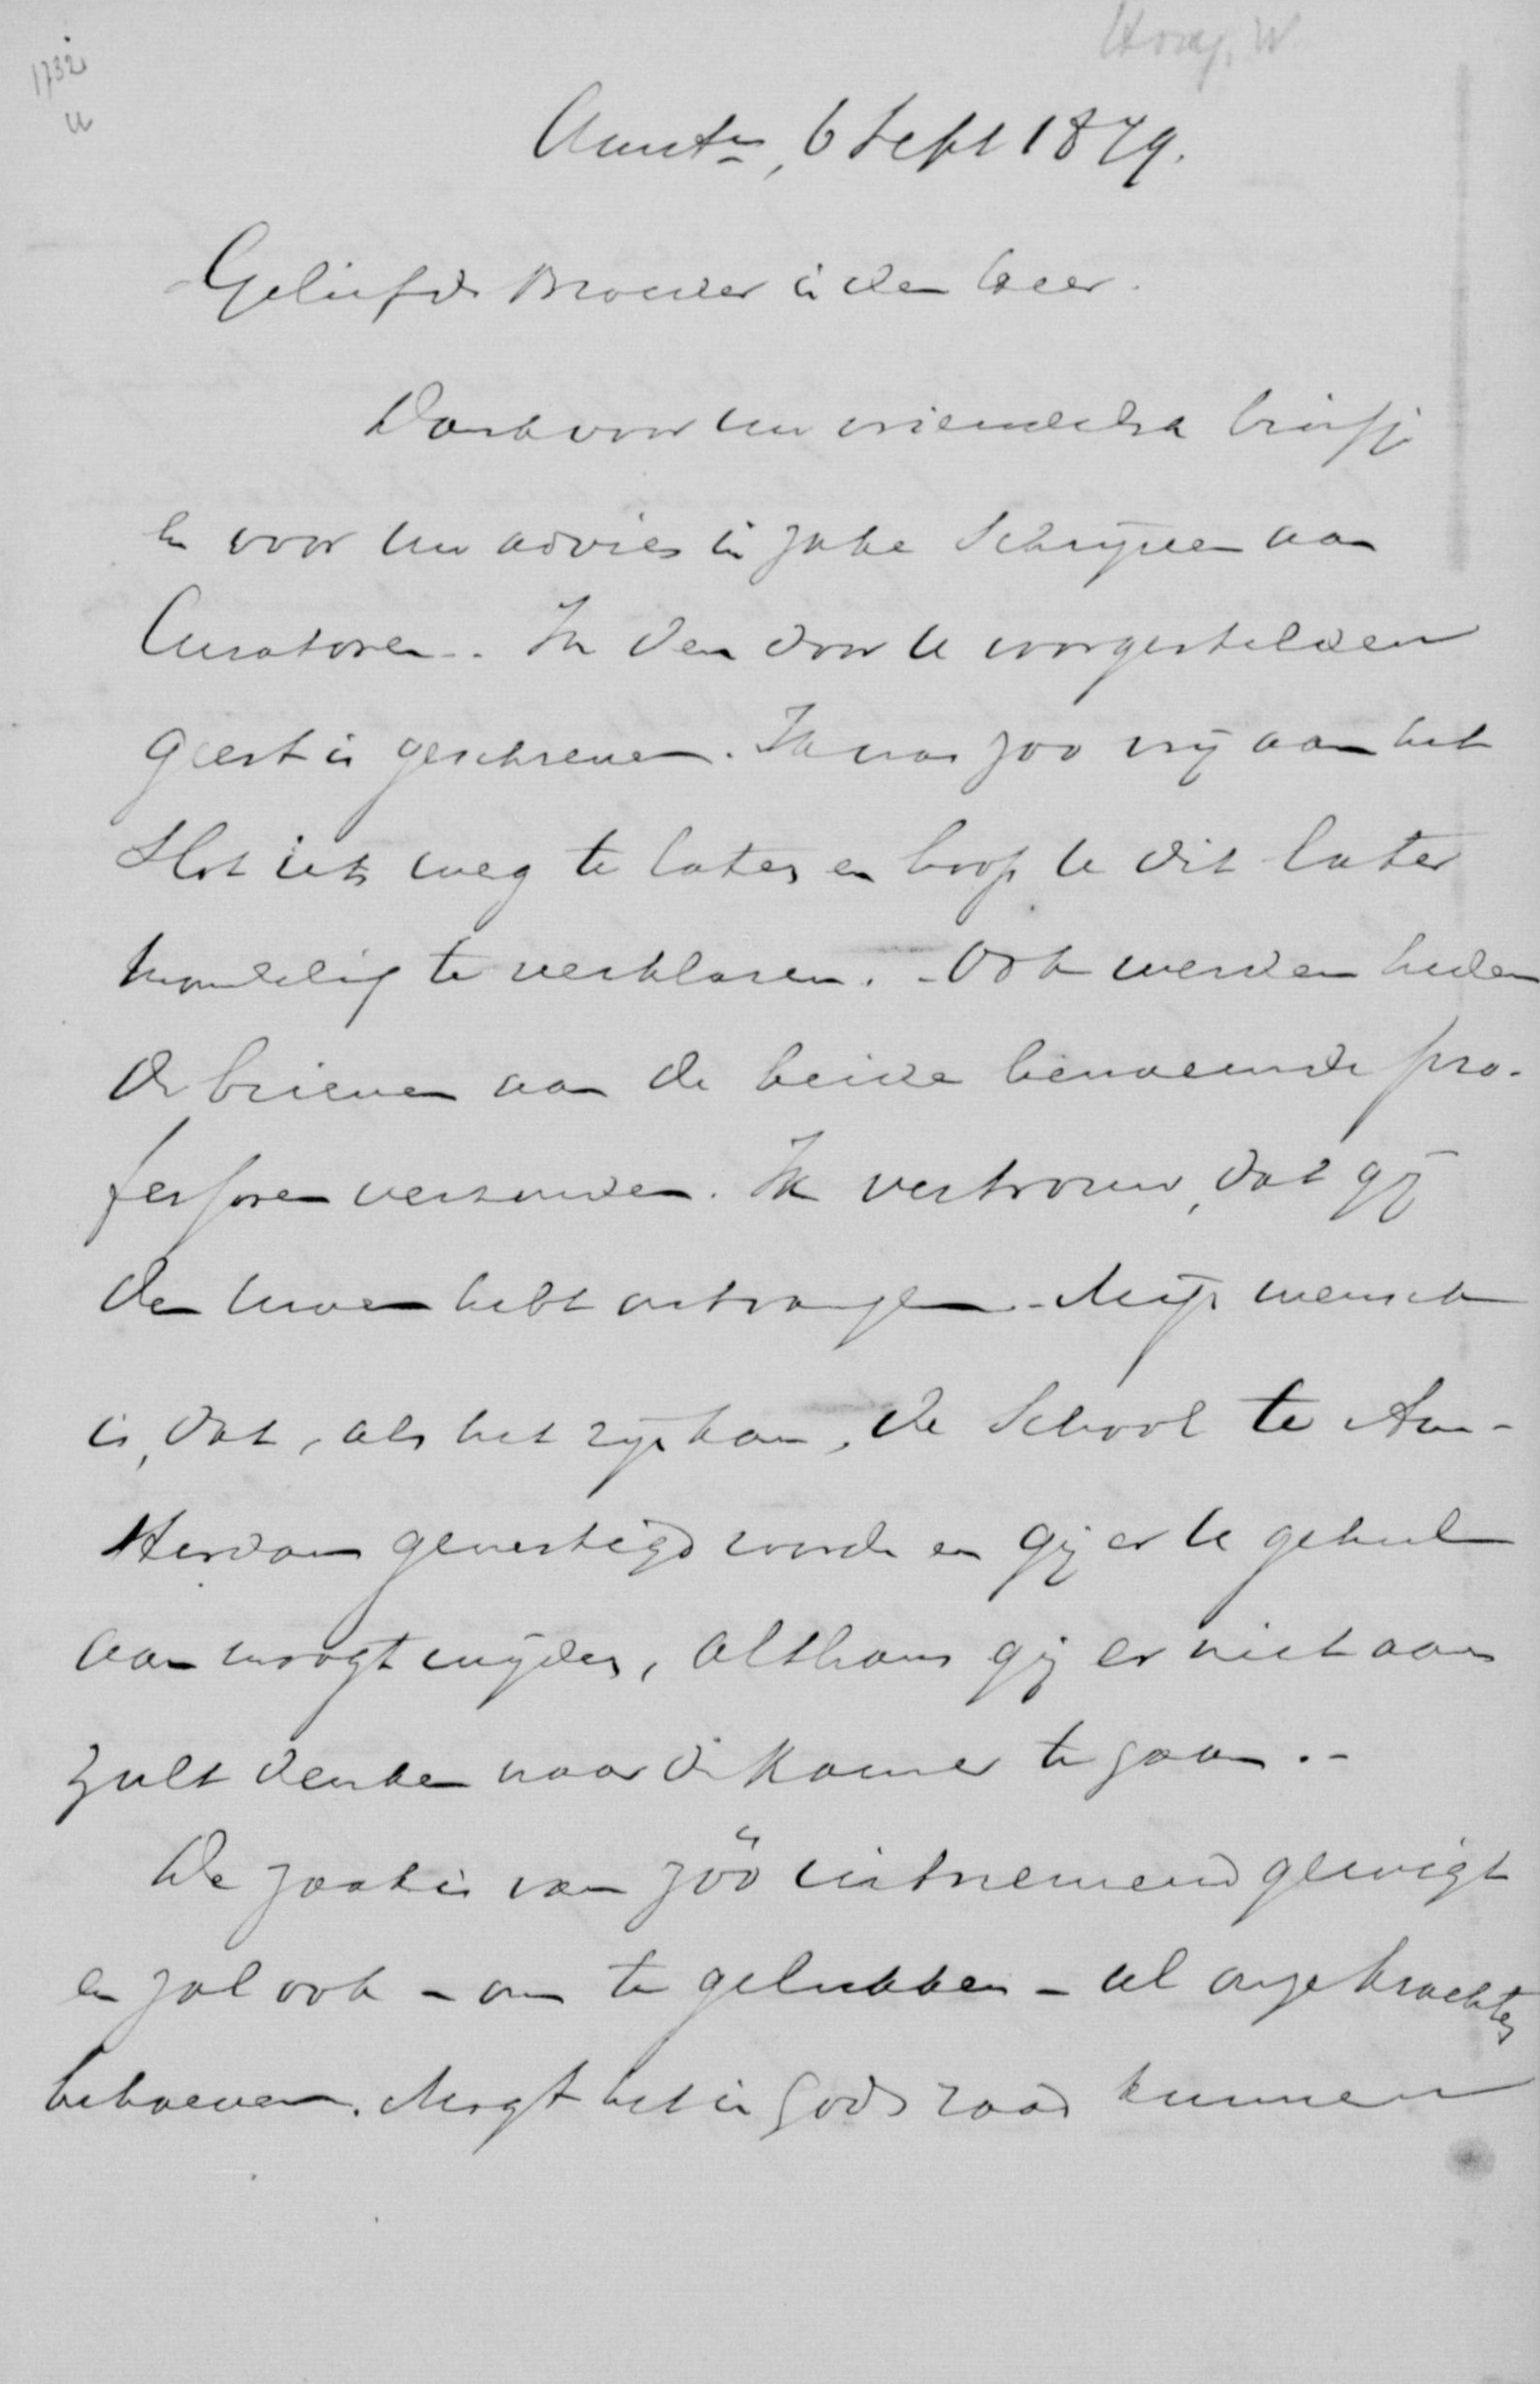 1732
u
Hovy, W
Amstm, 6 Sept 1879.
Geliefde Broeder in den Heer.
Dank voor uw vriendelijk briefje
en voor uw advies in zake Schrijven aan
Curatoren. In den door U voorgestelden
geest is geschreven. Ik was zoo vrij aan het
Slot iets weg te laten en hoop U dit later
mondelig te verklaren. - Ook werden heden
de brieven aan de beide benoemde pro-
fessoren verzonden. Ik vertrouw, dat gij
den uwen hebt ontvangen. - Mijn wensch
is, dat, als het zijn kan, de School te Am-
sterdam gevestigd worde en gij er U geheel
aan moogt wijden, althans gij er niet aan
zult denken naar de Kamer te gaan. -
De zaak is van zóó uitnemend gewigt
en zal ook - om te gelukken - al onze krachten
behoeven. Mogt het in Gods raad kunnen